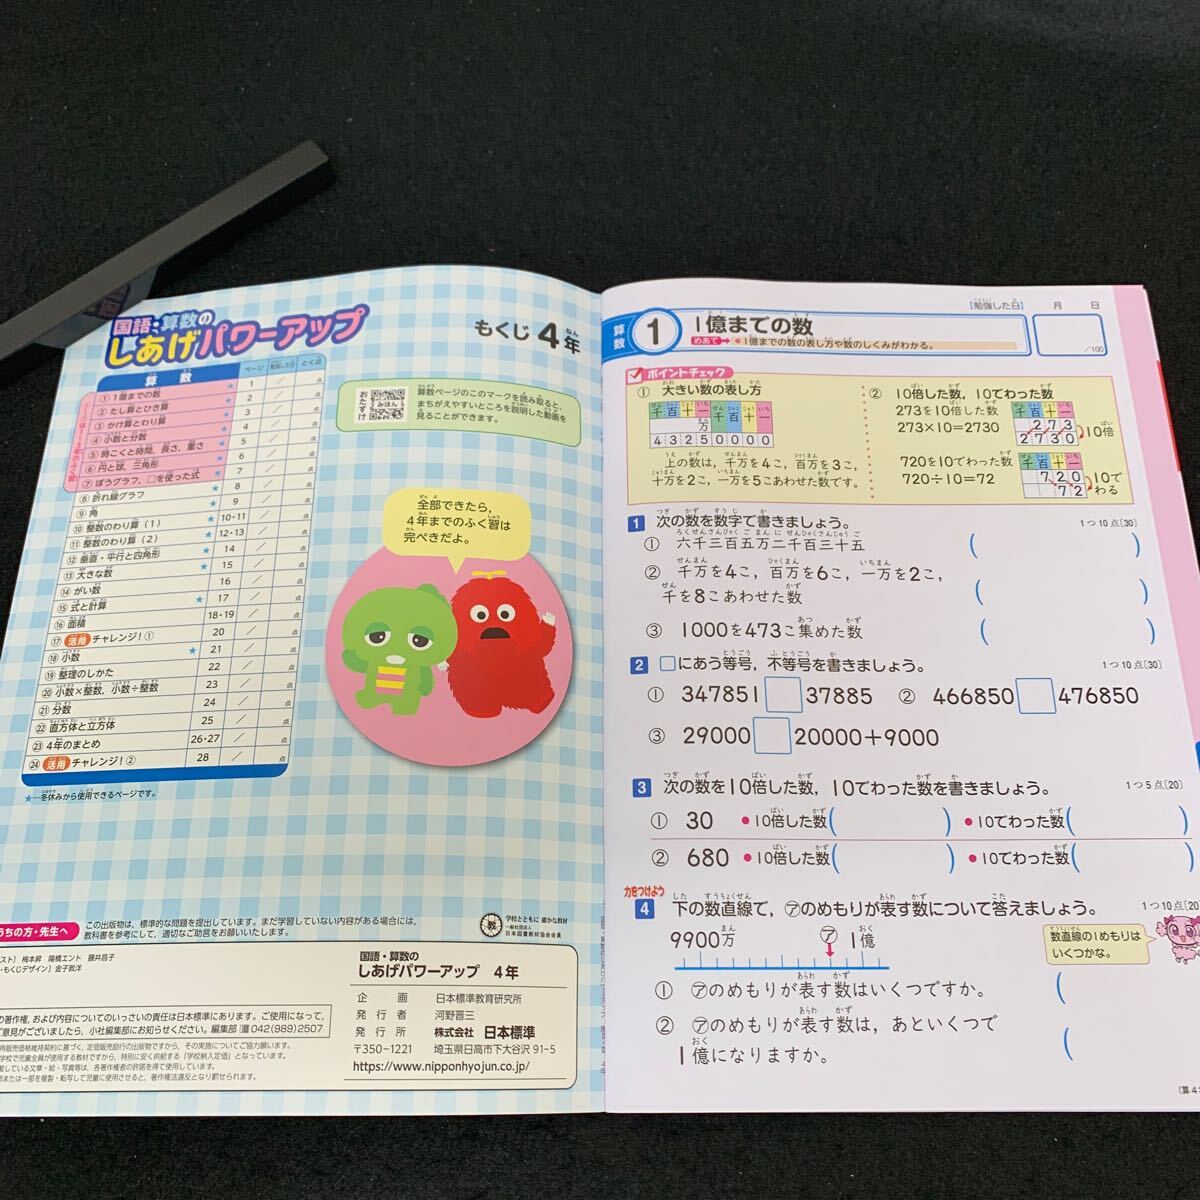 国語・算数の
しあげパワーアップ
もくじ 4年
算 数 ページ 勉強した日 とく点
① 1億までの数 ★ 1 / 点
② たし算とひき算 ★ 2 / 点
③ かけ算とわり算 ★ 3 / 点
④ 小数と分数 ★ 4 / 点
⑤ 時こくと時間，長さ，重さ ★ 5 / 点
⑥ 円と球，三角形 ★ 6 / 点
⑦ ぼうグラフ，□を使った式 ★ 7 / 点
⑧ 折れ線グラフ ★ 8 / 点
⑨ 角 ★ 9 / 点
⑩ 整数のわり算（1） ★ 10・11 / 点
⑪ 整数のわり算（2） ★ 12・13 / 点
⑫ 垂直・平行と四角形 ★ 14 / 点
⑬ 大きな数 ★ 15 / 点
⑭ がい数 16 / 点
⑮ 式と計算 ★ 17 / 点
⑯ 面積 18・19 / 点
⑰ 活用 チャレンジ！① 20 / 点
⑱ 小数 ★ 21 / 点
⑲ 整理のしかた 22 / 点
⑳ 小数×整数，小数÷整数 23 / 点
㉑ 分数 24 / 点
㉒ 直方体と立方体 25 / 点
㉓ 4年のまとめ 26・27 / 点
㉔ 活用 チャレンジ！② 28 / 点
★…冬休みから使用できるページです。
おたすけ
みほん
算数ページのこのマークを読み取ると，
まちがえやすいところを説明した動画を
見ることができます。
全部できたら，
4年までのふく習は
完ぺきだよ。
うちの方・先生へ
この出版物は，標準的な問題を提出しています。まだ学習していない内容がある場合には，
教科書を参考にして，適切なご助言をお願いいたします。
学校とともに 確かな教材
一般社団法人
日本図書教材協会会員
スト］梅本昇 陽橋エント 藤井昌子
・もくじデザイン］金子敦洋
の著作権，および内容についてのいっさいの責任は日本標準にあります。ご使用になって，
ご意見がございましたら，小社編集部にお知らせください。編集部 042(989)2507
国語・算数の
しあげパワーアップ 4年
企 画 日本標準教育研究所
発行者 河野晋三
発行所 株式会社 日本標準
〒350-1221 埼玉県日高市下大谷沢 91-5
https://www.nipponhyojun.co.jp/
［勉強した日］ 月 日
算数 1 1億までの数
めあて ● 1億までの数の表し方や数のしくみがわかる。
/100
ポイントチェック
① 大きい数の表し方
千 百 十 一 千 百 十 一
万
4 3 2 5 0 0 0 0
上の数は，千万を4こ，百万を3こ，
十万を2こ，一万を5こあわせた数です。
② 10倍した数，10でわった数
273を10倍した数
273×10=2730
千 百 十 一
2 7 3
2 7 3 0
10倍
720を10でわった数
720÷10=72
千 百 十 一
7 2 0
7 2
10でわる
1 次の数を数字で書きましょう。 1つ10点〔30〕
① 六千三百五万二千百三十五 ( )
② 千万を4こ，百万を6こ，一万を2こ，
千を8こあわせた数 ( )
③ 1000を473こ集めた数 ( )
2 □にあう等号，不等号を書きましょう。 1つ10点〔30〕
① 347851 □ 37885 ② 466850 □ 476850
③ 29000 □ 20000＋9000
3 次の数を10倍した数，10でわった数を書きましょう。 1つ5点〔20〕
① 30 ● 10倍した数( ) ● 10でわった数( )
② 680 ● 10倍した数( ) ● 10でわった数( )
力をつけよう
4 下の数直線で，㋐のめもりが表す数について答えましょう。 1つ10点〔20
9900万 ㋐ 1億
数直線の1めもりは
いくつかな。
① ㋐のめもりが表す数はいくつですか。 (
② ㋐のめもりが表す数は，あといくつで
1億になりますか。 (